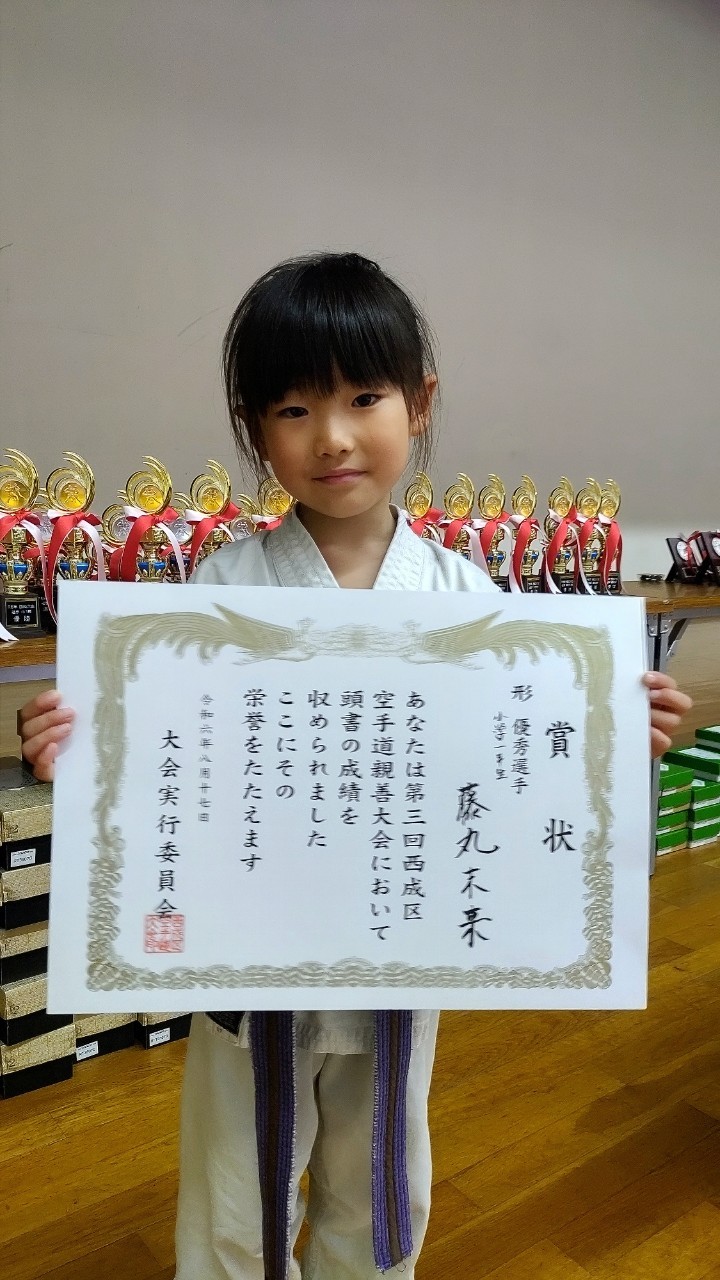 賞状
形 優秀選手
小学一年生
藤丸未来
あなたは第三回西成区
空手道親善大会において
頭書の成績を
収められました
ここにその
栄誉をたたえます
令和六年八月廿七日
大会実行委員会